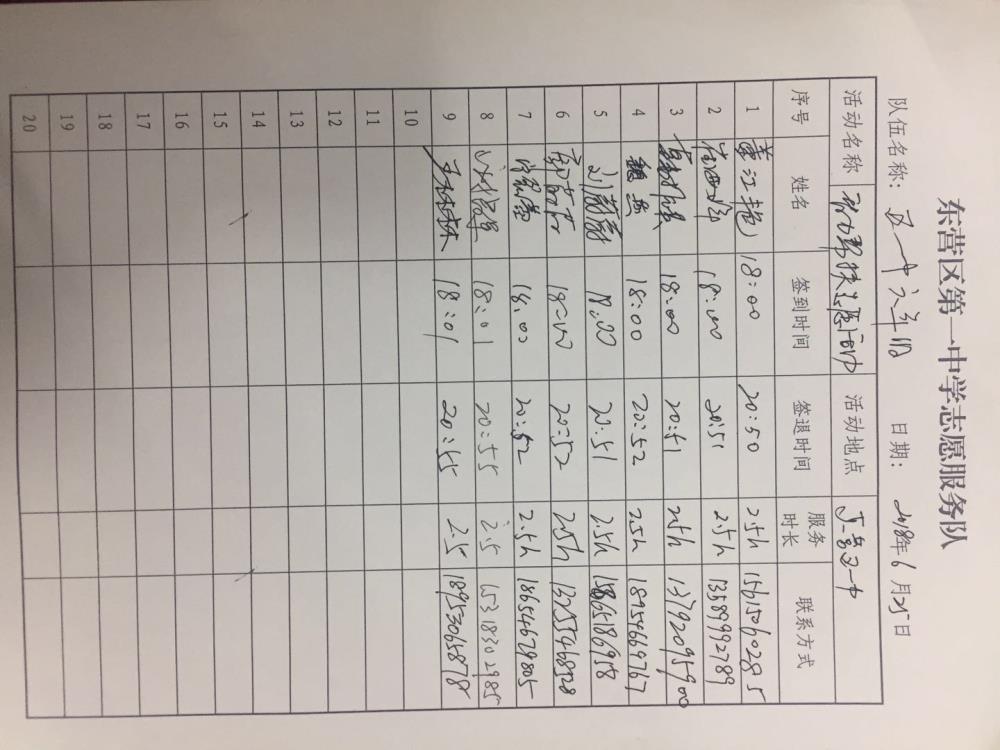 东营区第一中学志愿服务队
队伍名称: 区一中六年级 日期: 2018年6月25日
活动名称 活动地点 东营区一中
序号 姓名 签到时间 签退时间 服务时长 联系方式
1 董江艳 18:00 20:50 2.5h 15615060285
2 18:00 20:51 2.5h 13589992789
3 18:00 20:51 2.5h 13792095900
4 魏燕 18:00 20:52 2.5h 18954669767
5 刘 18:00 20:51 2.5h
6 18:00 20:52 2.5h 13255468528
7 18:00 20:52 2.5h 18654679805
8 18:01 20:55 2.5 15318302985
9 18:01 20:55 2.5 18953065878
10
11
12
13
14
15
16
17
18
19
20